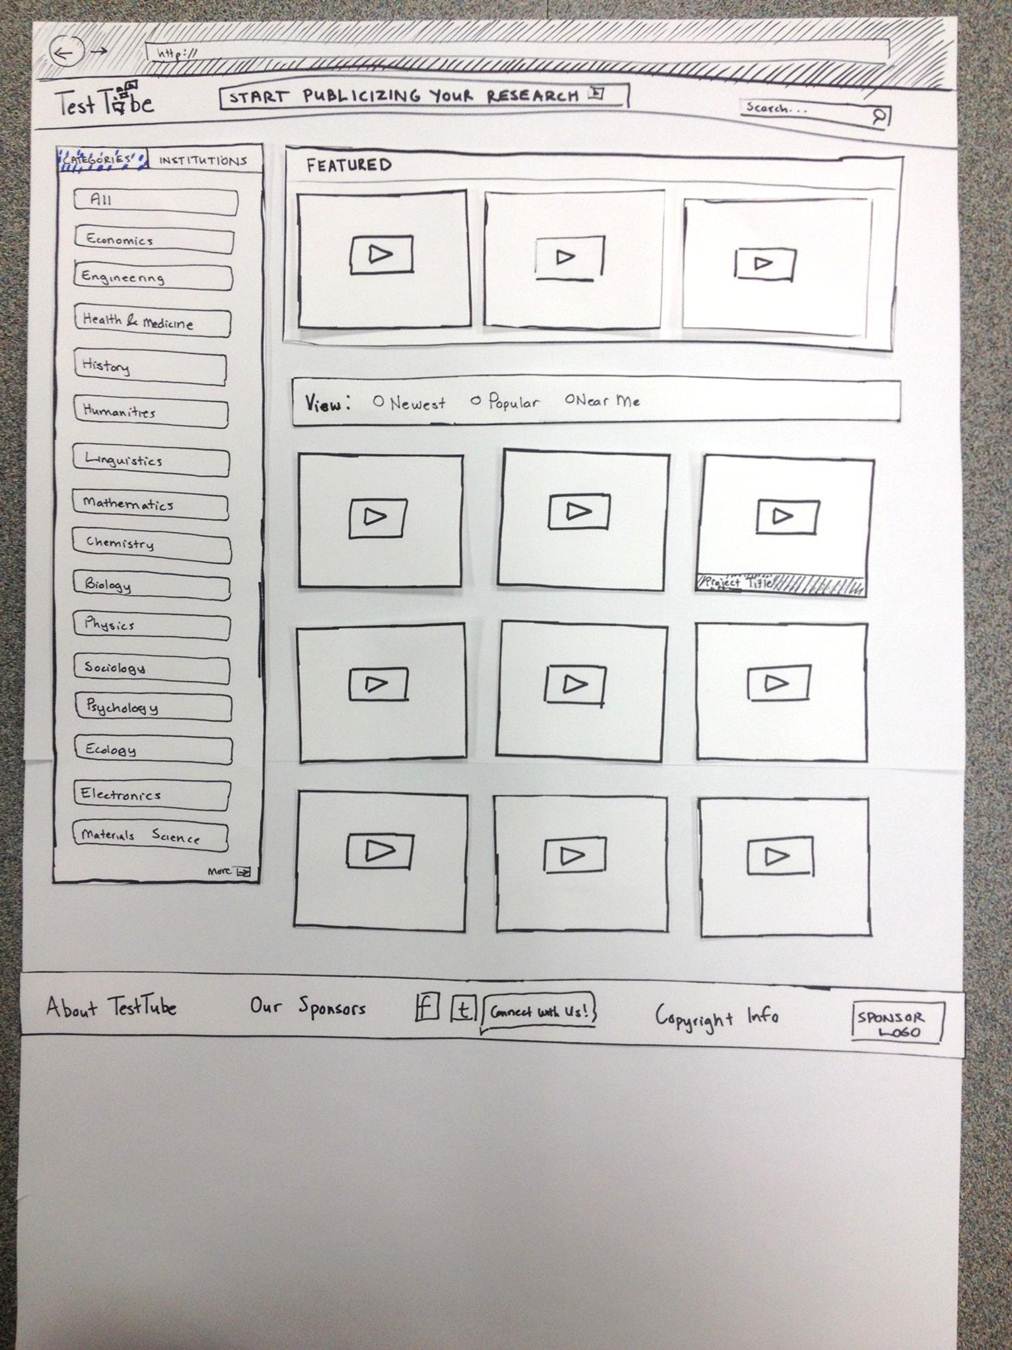 http://
Test Tube
START PUBLICIZING YOUR RESEARCH
Search...
CATEGORIES
INSTITUTIONS
All
Economics
Engineering
Health & Medicine
History
Humanities
Linguistics
Mathematics
Chemistry
Biology
Physics
Sociology
Psychology
Ecology
Electronics
Materials Science
More
FEATURED
View: Newest Popular Near Me
Project Title
About TestTube
Our Sponsors
f
t
Connect with Us!
Copyright Info
SPONSOR
LOGO